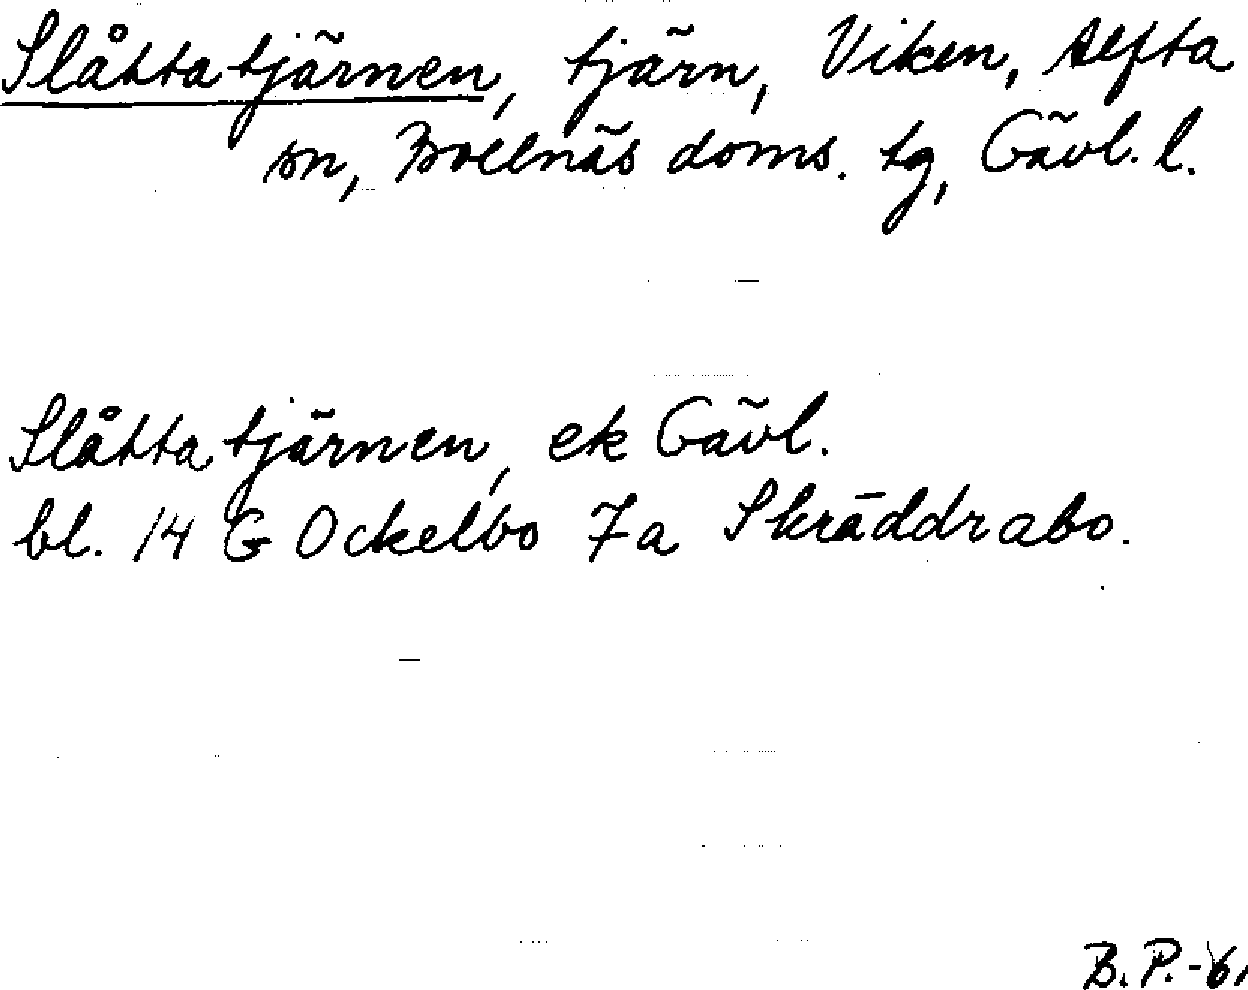 Slåttatjärnen, tjärn, Viken, Alfta
sn, Bollnäs doms. tg, Gävl. l.
Slåttatjärnen, ek Gävl.
bl. 14 G Ockelbo 7a Skräddrabo.
B. P. -61